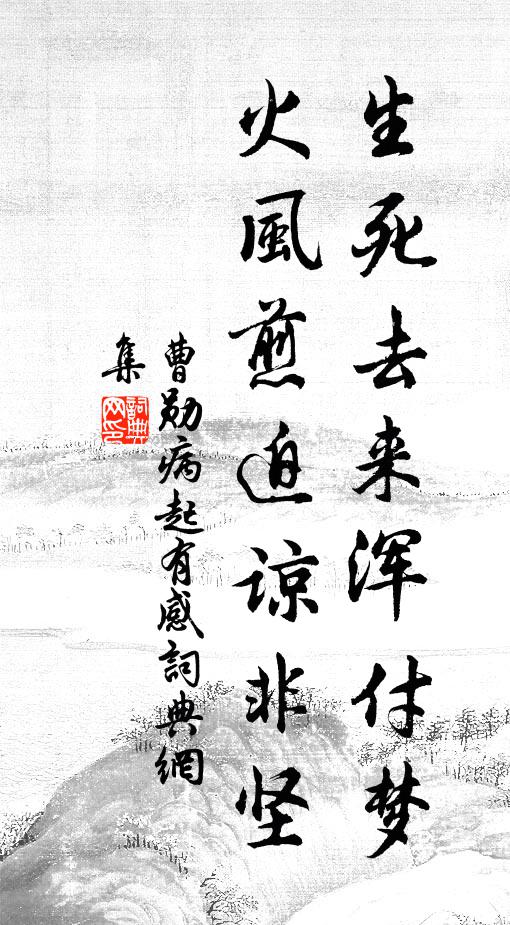 生死去来浑付梦
火風煎迫谅非坚
曹勋病起有感詞典網
集
詞典网印